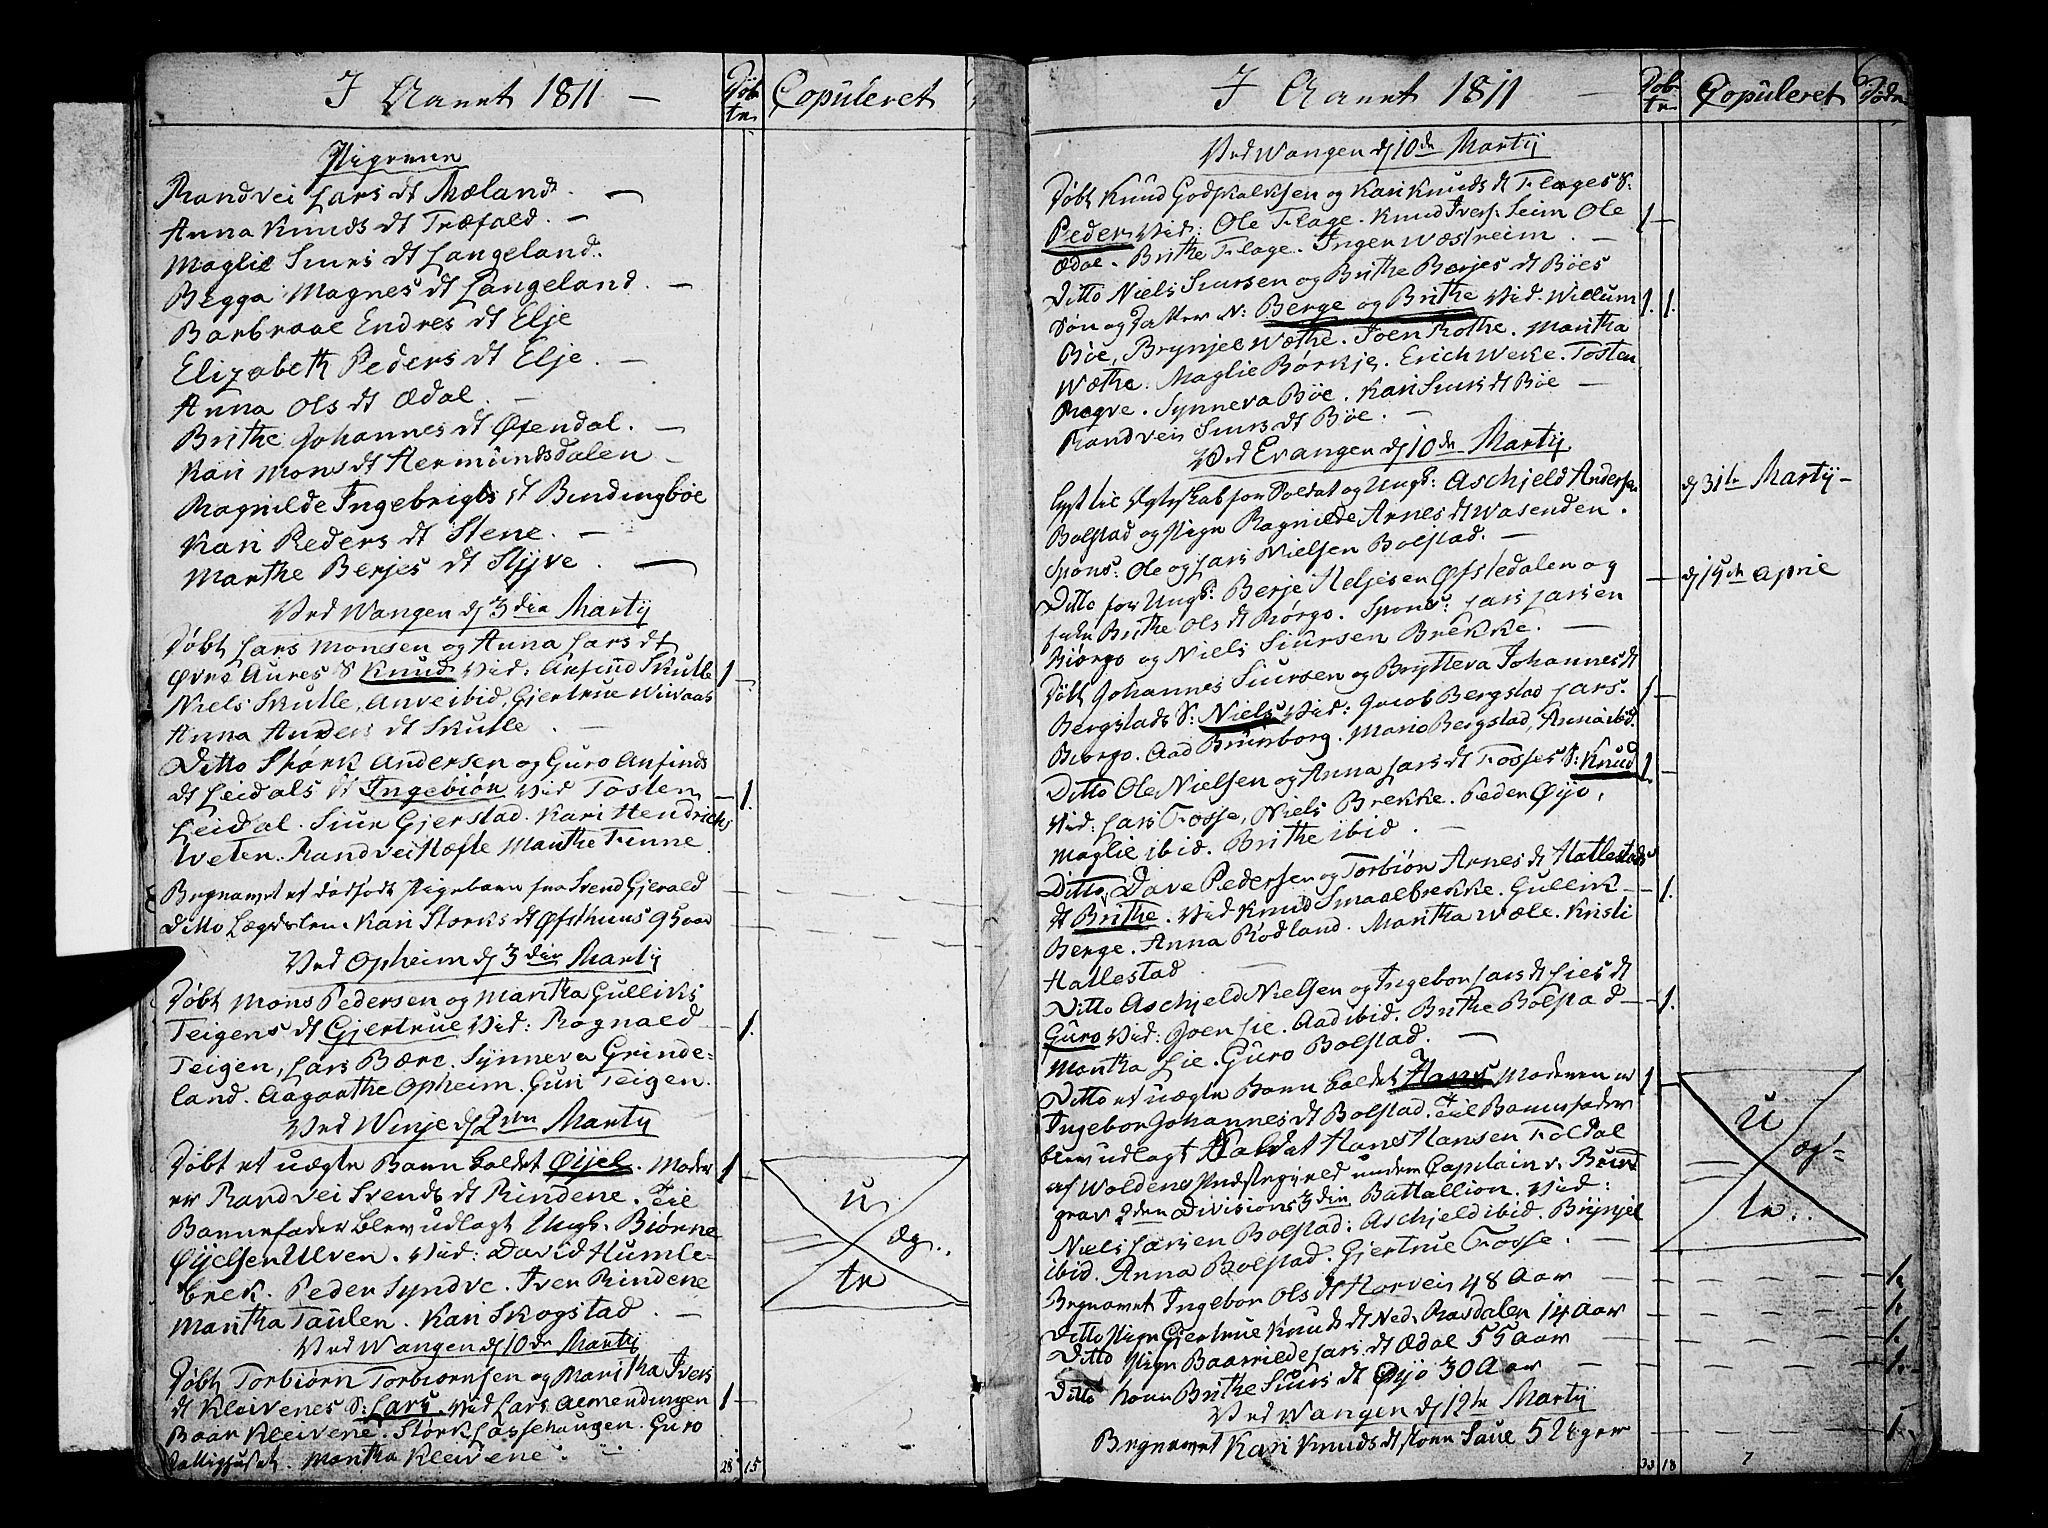 I Aaret 1811 —
Døb-
te.
Copuleret
Pigerne
Randvei Lars dt Mæland. —
Anna Knuds dt Træfald. —
Maglie Siurs dt Langeland.
Begga Magnes dt Langeland. —
Barbraae Endres dt Elje
Elizabeth Peders dt Elje. —
Anna Ols dt Ædal. —
Brithe Johannes dt Øfendal. —
Kari Mons dt Hermundsdalen —
Ragnilde Ingebrigts dt Bindingbøe
Kari Peders dt Stene. —
Marthe Berjes dt Styve. —
Ved Wangen d 3die Martÿ
Døbt Lars Monsen og Anna Lars dt
Øvre Aures S Knud Vid: Anfind Skutle 1 —
Niels Skutle, Anve ibid, Gjertrue Wivaas
Anna Anders dt Skutle. —
Ditto Størk Andersen og Guro Anfinds
dt Leidals dt Ingebiør Vid Tosten — 1.
Leidal. Siur Gjerstad. Kari Hendrichs
Weten. Randvei Hæfte Marthe Finne.
Begravet et dødfødt Pigebarn fra Svend Gjerald
Ditto Lægdslem Kari Størks dt Øfsthuus 95 aar
Ved Opheim d 3die Martÿ
Døbt Mons Pedersen og Maritha Gulliks
Teigens dt Gjertrue Vid: Rognald — 1.
Teigen, Lars Bære. Synneva Grinde-
land. Aagarthe Opheim. Guri Teigen.
Ved Winje d 2den Martÿ
Døbt et uægte Barn kaldet Øÿjel. Moder 1 —
er Randvei Svends dt Rindene. Til
Barnefader blev udlagt Ungk. Biørne
Øÿjelsen Ulven. Vid: David Humle-
brek. Peder Syndve. Iver Rindene
Maritha Taulen. Kari Skogstad. —
u
æg..
te
Ved Wangen d 10de Martÿ
Døbt Torbiørn Torbiørnsen og Maritha Ivers
dt Kleivenes S: Lars. Vid Lars Almendingen 1 —
Baar Kleivene. Størk Lassehaugen. Guro
Maritha Kleivene.
28 15
I Aaret 1811 —
Døb-
te.
Copuleret
6
Døde
Ved Wangen d 10de Martÿ
Døbt Knud Godskalksen og Kari Knuds dt Flages S:
Peder Vid: Ole Flage. Knud Ivers. Seim Ole 1 —
Ædal. Brithe Flage. Inger Wæstreim. —
Ditto Niels Siursen og Brithe Berjes dt Bøes
Søn og Datter N: Berge og Brithe Vid. Willum 1. 1.
Bøe, Brynjel Wæthe. Joen Rothe. Maritha
Wæthe. Maglie Børkje. Erich Weke. Tosten
Ragve. Synneva Bøe. Kari Siurs dt Bøe —
Randvei Siurs dt Bøe. —
Ved Evangen d 10de Martÿ
Lyst til Ægteskab for Soldat og Ungk: Aschjeld Anders. d 31te Martÿ —
Bolstad og Pige Ragnilde Arnes dt Wasenden.
Spons: Ole og Lars Nielsen Bolstad. —
Ditto for Ungk: Berje Heljesen Øfstedalen og — d 15de April
Brithe Ols dt Børgo. Spons: Lars Larsen
Biørgo og Niels Siursen Brekke. —
Døbt Johannes Siursen og Brytteva Johannes dt
Bergstads S: Niels Vid: Jacob Bergstad Lars. 1 —
Biørgo. Aad Brunborg. Mario Bergstad, Anna ibid.
Ditto Ole Nielsen og Anna Lars dt Fosses S: Knud 1. —
Vid: Lars Fosse, Niels Brekke. Peder Øÿo,
Maglie ibid. Brithe ibid. —
Ditto, Dave Pedersen og Torbiør Arnes dt Hatlestads
dt Brithe. Vid Knud Smaalbrekke. Gullik — 1.
Berge. Anna Rodland. Maritha Wæle. Kristi
Hatlestad —
Ditto Aschjeld Nielsen og Ingebor Lars dt Lies dt
Guro Vid: Joen Lie. Aad ibid. Brithe Bolstad — 1.
Maritha Lie. Guro Bolstad. —
Ditto et uægte Barn kaldet Hans Moderen er 1 —
Ingebor Johannes dt Bolstad. Til Barnefader
blev udlagt Soldat Hans Hansen Foldal
af Woldens Præstegield under Captain v. Brun
grav 2den Divisions 3die Battallion. Vid:
Niels Larsen Bolstad: Aschjeld ibid. Brÿnjel
ibid. Anna Bolstad. Gjertrue Fosse. —
u
æg-
te..
Begravet Ingebor Ols dt Horvei 48 Aar — 1.
Ditto Pige Gjertrue Knuds dt Ned. Rasdalen 14 Aar — 1.
Ditto Pige Baarnilde Lars dt Ædal 55 Aar — 1.
Ditto Kone Brithe Siurs dt Øÿo 30 Aar — 1.
Ved Wangen d 12te Martÿ
Begravet Kari Knuds dt store Saue 5 Uger — 1.
33 18 7